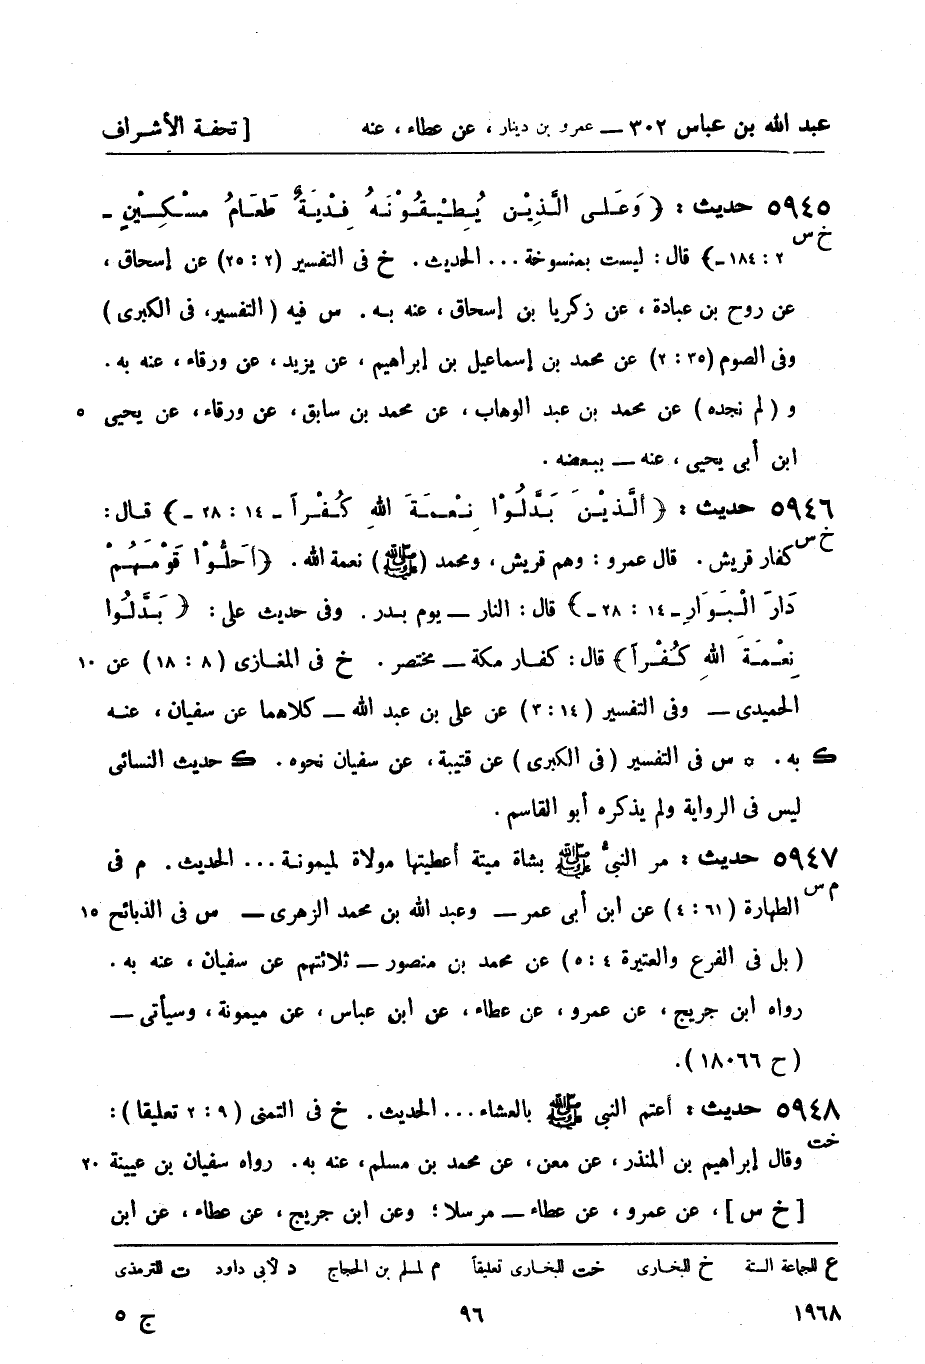 عبد الله بن عباس ٣٠٢ ــ عمرو بن دينار ، عن عطاء ، عنه [ تحفة الأشراف
٥٩٤٥ حديث : ﴿ وَعَلَى الَّذِيْنَ يُطِيْقُوْنَهُ فِدْيَةٌ طَعَامُ مِسْكِيْنٍ ـ
خ س
٢ : ١٨٤ ـ﴾ قال : ليست بمنسوخة ... الحديث . خ فى التفسير (٢ : ٢٥) عن إسحاق ،
عن روح بن عبادة ، عن زكريا بن إسحاق ، عنه به . س فيه ( التفسير، فى الكبرى )
وفى الصوم (٣٥ : ٢) عن محمد بن إسماعيل بن إبراهيم ، عن يزيد ، عن ورقاء ، عنه به .
و ( لم نجده ) عن محمد بن عبد الوهاب ، عن محمد بن سابق ، عن ورقاء ، عن يحيى ٥
ابن أبى يحيى ، عنه ــ ببعضه .
٥٩٤٦ حديث : ﴿ اَلَّذِيْنَ بَدَّلُوْا نِعْمَةَ اللهِ كُفْراً ـ ١٤ : ٢٨ ـ﴾ قال :
خ س
كفار قريش . قال عمرو : وهم قريش ، ومحمد (ﷺ) نعمة الله . ﴿اَحَلُّوْا قَوْمَهُمْ
دَارَ الْبَوَارِ ـ ١٤ : ٢٨ ـ﴾ قال : النار ــ يوم بدر . وفى حديث على : ﴿ بَدَّلُوا
نِعْمَةَ اللهِ كُفْراً﴾ قال : كفار مكة ــ مختصر . خ فى المغازى (٨ : ١٨) عن ١٠
الحميدى ــ وفى التفسير (١٤ : ٣) عن على بن عبد الله ــ كلاهما عن سفيان ، عنه
ك به . ¤ س فى التفسير ( فى الكبرى ) عن قتيبة ، عن سفيان نحوه . ك حديث النسائى
ليس فى الرواية ولم يذكره أبو القاسم .
٥٩٤٧ حديث : مر النبىُّ ﷺ بشاة ميتة أعطيتها مولاة لميمونة ... الحديث . م فى
م س
الطهارة (٦١ : ٤) عن ابن أبى عمر ــ وعبد الله بن محمد الزهرى ــ س فى الذبائح ١٥
( بل فى الفرع والعتيرة ٤ : ٥) عن محمد بن منصور ــ ثلاثتهم عن سفيان ، عنه به .
رواه ابن جريج ، عن عمرو ، عن عطاء ، عن ابن عباس ، عن ميمونة ، وسيأتى ــ
( ح ١٨٠٦٦ ) .
٥٩٤٨ حديث : أعتم النبى ﷺ بالعشاء ... الحديث . خ فى التمنى (٩ : ٢ تعليقا ) :
خت
وقال إبراهيم بن المنذر ، عن معن ، عن محمد بن مسلم ، عنه به . رواه سفيان بن عيينة ٢٠
[ خ س ] ، عن عمرو ، عن عطاء ــ مرسلا ؛ وعن ابن جريج ، عن عطاء ، عن ابن
ع للجماعة الستة خ للبخارى خت للبخارى تعليقاً م لمسلم بن الحجاج د لأبى داود ت للترمذى
١٩٦٨ ٩٦ ج ٥